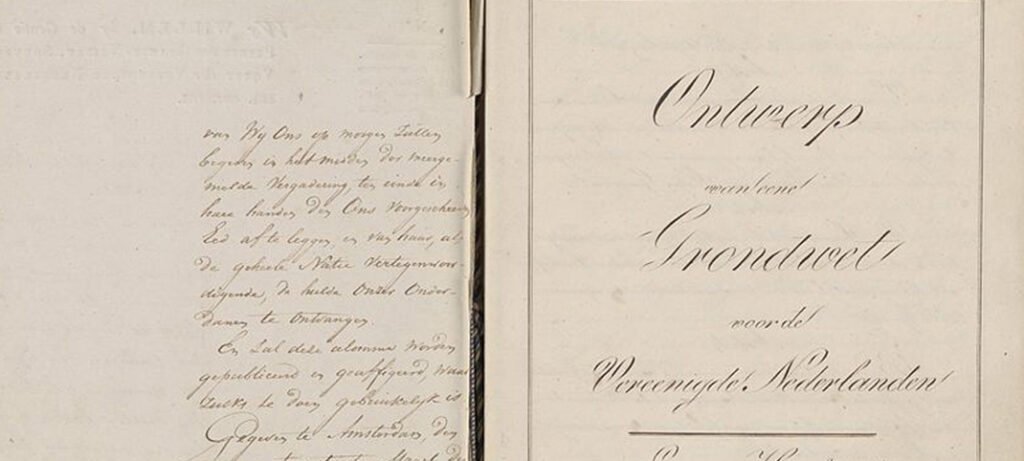 van Wy Ons op morgen zullen
begeven in het midden der meerge-
melde Vergadering, ten einde in
hare handen den Ons voorgeschreven
Eed af te leggen, en van haar, als
de geheele Natie vertegenwoor-
digende, de hulde Onzer Onder-
danen te ontvangen.
En zal deze alomme worden
gepubliceerd en geaffigeerd, waar
zulks te doen gebruikelyk is
Gegeven te Amsterdam, den
Ontwerp
van eene
Grondwet
voor de
Vereenigde Nederlanden